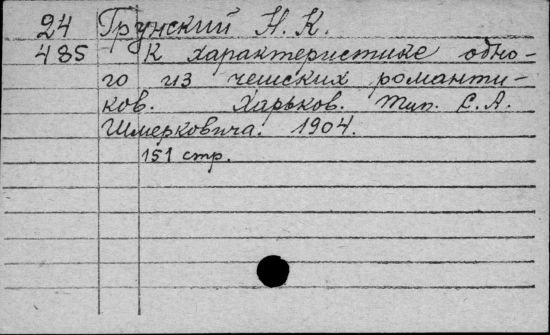 24 Грунский Н. К.
485 К характеристике одно-
го из чешских романти-
ков. Харьков. Тип. С. А.
Шмерковича. 1904.
151 стр.